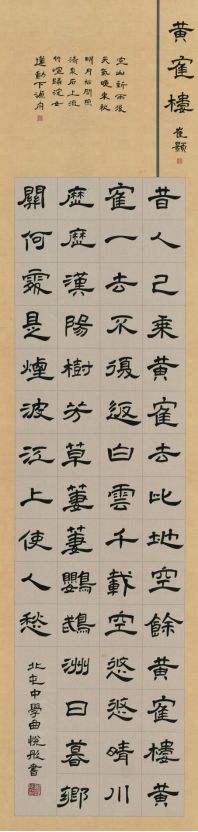 黄寉樓
崔顥
空山新雨後
天氣晚來秋
明月松間照
清泉石上流
竹喧歸浣女
蓮動下漁舟
昔人已乘黄寉去此地空餘黄寉樓黄
寉一去不復返白雲千載空悠悠晴川
歷歷漢陽樹芳草萋萋鸚鵡洲日暮鄉
關何處是煙波江上使人愁
北屯中學曲悦彤書